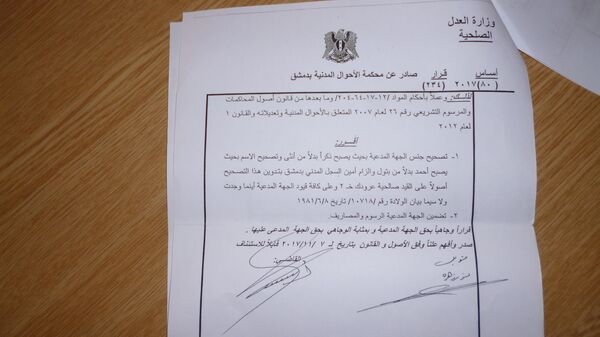 وزارة العدل
الصلحية
أساس قرار صادر عن محكمة الأحوال المدنية بدمشق
(٨٠)٢٠١٧ (٢٣٤)
لذلك: وعملاً بأحكام المواد /١٢-١٧-٦٤-٢٠٤/ وما بعدها من قانون أصول المحاكمات
والمرسوم التشريعي رقم ٢٦ لعام ٢٠٠٧ المتعلق بالأحوال المدنية وتعديلاته والقانون ١
لعام ٢٠١٢
أقـرر:
١- تصحيح جنس الجهة المدعية بحيث يصبح ذكراً بدلاً من أنثى وتصحيح الاسم بحيث
يصبح أحمد بدلاً من بتول وإلزام أمين السجل المدني بدمشق بتدوين هذا التصحيح
أصولاً على القيد صالحية عرودك خـ ٢ وعلى كافة قيود الجهة المدعية أينما وجدت
ولا سيما بيان الولادة رقم /١٠٧١٨/ تاريخ ١٩٨١/٦/٨
٢- تضمين الجهة المدعية الرسوم والمصاريف.
قراراً وجاهياً بحق الجهة المدعية و بمثابة الوجاهي بحق الجهة المدعى عليها .
صدر وأفهم علناً وفق الأصول و القانون بتاريخ لـ ٧ /٢٠١٧/١١ قابلاً للاستئناف
القاضي: